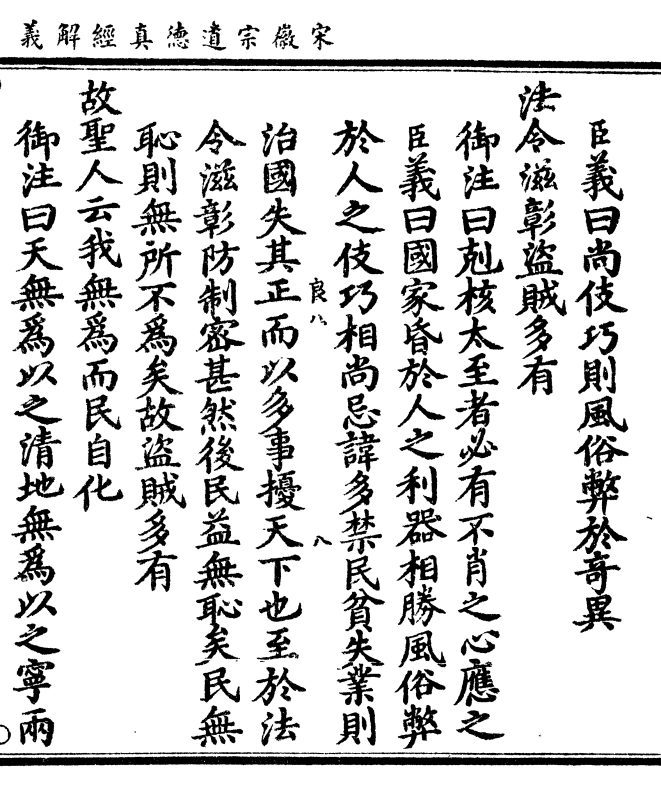 宋徽宗道德真經解義
臣義曰尚伎巧則風俗弊於竒異
法令滋彰盜賊多有
御注曰剋核太至者必有不肖之心應之
臣義曰國家昏於人之利器相勝風俗弊
於人之伎巧相尚忌諱多禁民貧失業則
良八
八
治國失其正而以多事擾天下也至於法
令滋彰防制密甚然後民益無恥矣民無
恥則無所不為矣故盜賊多有
故聖人云我無為而民自化
御注曰天無為以之清地無為以之寧兩